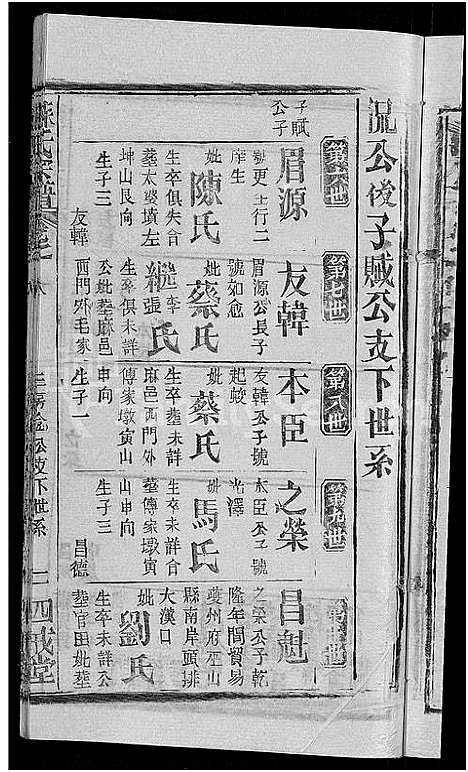 況公後子賦公支下世系
第六世
子賦
公子
眉源
字更上行二
庠生
妣陳氏
生卒俱失合
塟太婆墳左
坤山艮向
生子三
友韓
第七世
友韓
眉源公長子
號如愈
妣蔡氏
繼李張氏
生卒俱未詳
公妣塟麻邑
西門外毛家
第八世
本臣
友韓公子號
起蛟
妣蔡氏
生卒塟未詳
麻邑西門外
傅家墩寅山
申向
生子一
第九世
之榮
本臣公子號
光澤
妣馬氏
生卒未詳合
塟傅家墩寅
山申向
生子三
昌德
昌魁
之榮公子乾
隆年間貿易
夔州府巫山
縣南岸頭排
大漢口
妣劉氏
生卒未詳公
塟官田妣塟
公支下世系
二四戒堂